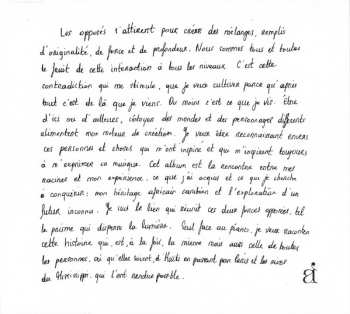 Les opposés s'attirent pour créer des mélanges, remplis
d'originalité, de force et de profondeur. Nous sommes tous et toutes
le fruit de cette interaction à tous les niveaux. C'est cette
contradiction qui me stimule, que je veux cultiver parce qu'après
tout c'est de là que je viens. Du moins c'est ce que je vis. Être
d'ici ou d'ailleurs, côtoyer des mondes et des personnages différents
alimentent mon moteur de création. Je veux être reconnaissant envers
ces personnes et choses qui m'ont inspiré et qui m'inspirent toujours
à m'exprimer en musique. Cet album est la rencontre entre mes
racines et mon expérience, ce que j'ai acquis et ce que je cherche
à conquérir: mon héritage africain caribéen et l'exploration d'un
futur inconnu. Je suis le lien qui réunit ces deux forces opposées, tel
la paume qui disperse la lumière. Seul face au piano, je veux raconter
cette histoire qui est, à la fois, la mienne mais aussi celle de toutes
les personnes, où qu'elles soient, d'Haïti en passant par Paris et les rives
du Mississippi, qui l'ont rendue possible.